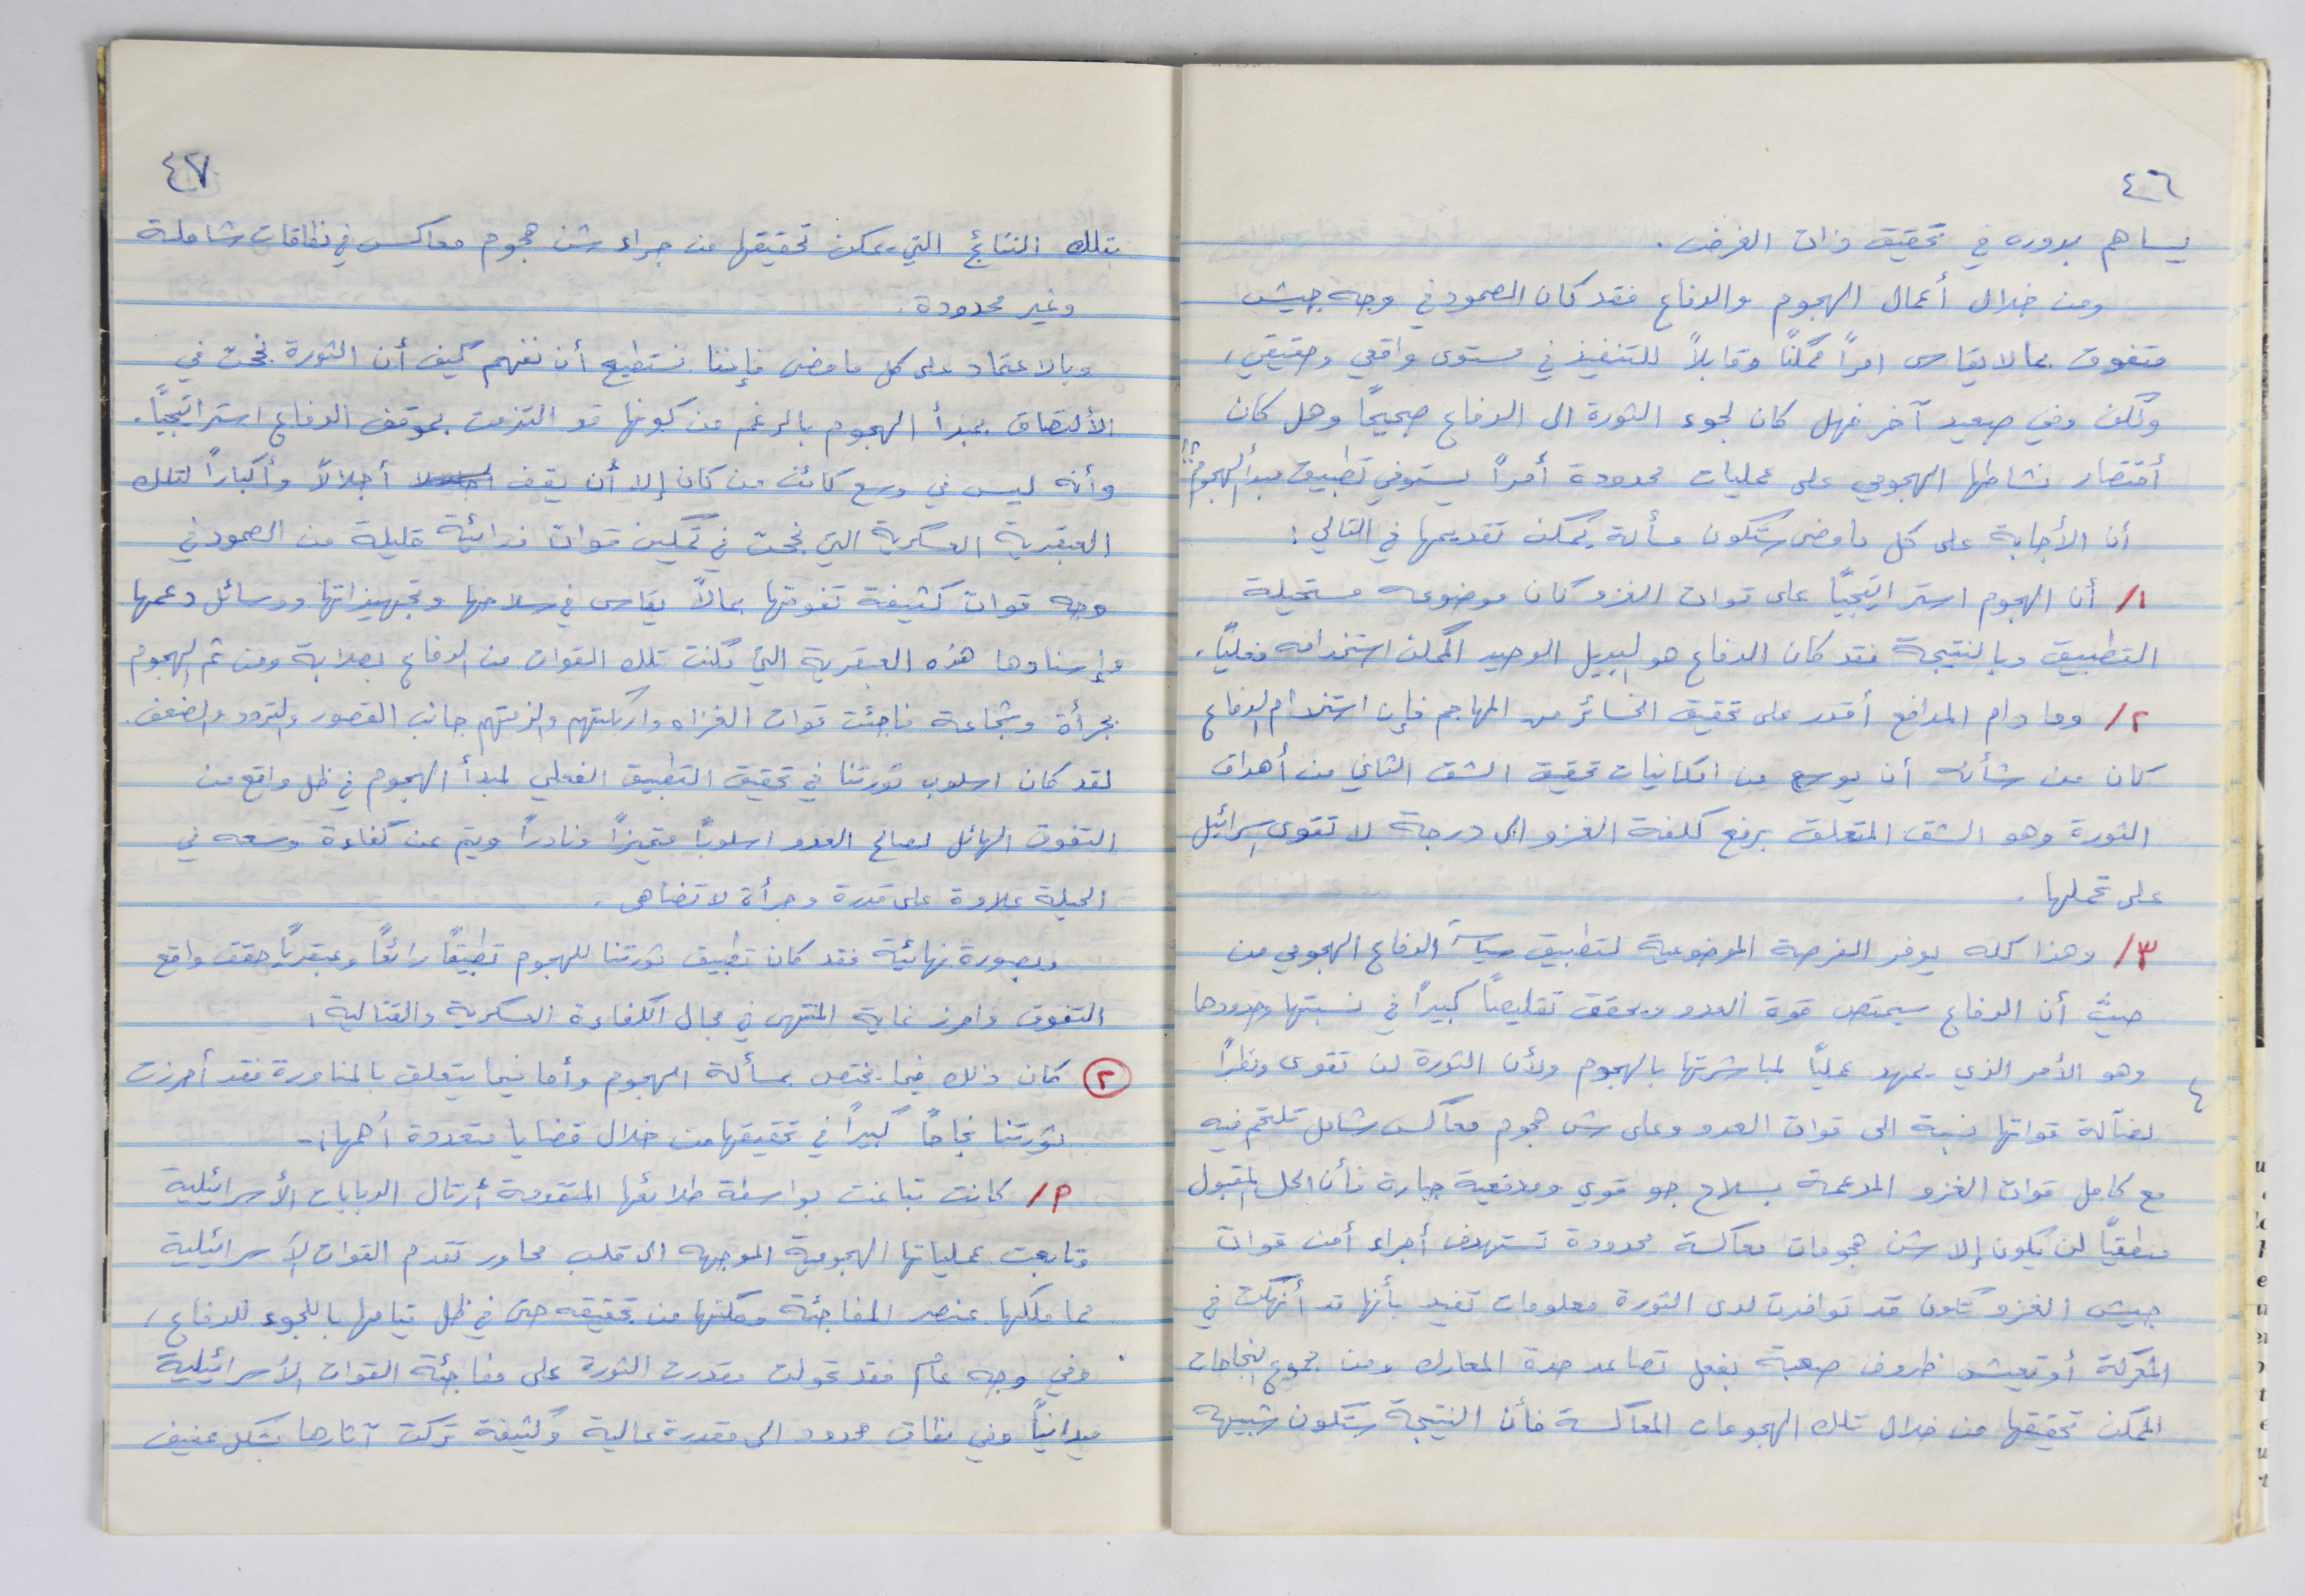 ٤٦
يساهم بدوره في تحقيق ذات الغرض .
ومن خلال أعمال الهجوم والدفاع فقد كان الصمود في وجه جيش
متفوق بما لا يقاس امراً ممكناً وقابلاً للتنفيذ في مستوى واقعي وحقيقي ،
ولكن وفي صعيد آخر فهل كان لجوء الثورة الى الدفاع صحيحاً وهل كان
أقتصار نشاطها الهجومي على عمليات محدودة أمراً يستوفي تطبيق مبدأ الهجوم؟!
أن الأجابة على كل ما مضى ستكون مسألة يمكن تقديمها في التالي :
١/ أن الهجوم استراتيجيّاً على قوات الغزو كان موضوعه مستحيلة
التطبيق وبالنتيجة فقد كان الدفاع هو البديل الوحيد الممكن استخدامه فعليّاً .
٢/ وما دام المدافع أقدر على تحقيق الخسائر من المهاجم فإن استخدام الدفاع
كان من شأنه أن يوسع من امكانيات تحقيق الشق الثاني من أهداف
الثورة وهو الشق المتعلق برفع كلفة الغزو الى درجة لا تقوى اسرائيل
على تحملها .
٣/ وهذا كله يوفر الفرصة الموضوعية لتطبيق سياسة الدفاع الهجومي من
حيثُ أن الدفاع سيمتص قوة العدو ويحقق تقليصاً كبيراً في نسبتها وحدودها
وهو الأمر الذي يمهد عمليّاً لمباشرتها بالهجوم ولأن الثورة لن تقوى ونظراً
لضآلة قواتها نسبة الى قوات العدو وعلى شن هجوم معاكس شامل تلتحم فيه
مع كامل قوات الغزو المدعمة بسلاح جو قوي ومدفعية جبارة فأن الحل المقبول
منطقيّاً لن يكون إلا شن هجومات معاكسة محدودة تستهدف أجزاء من قوات
جيش الغزو تكون قد توافرت لدى الثورة معلومات تفيد بأنها قد أنهكت في
المعركة أو تعيش ظروف صعبة بفعل تصاعد حدة المعارك ومن مجموع النجاحات
الممكن تحقيقها من خلال تلك الهجومات المعاكسة فأن النتيجة ستكون شبيهه
٤٧
بتلك النتائج التي يمكن تحقيقها من جراء شن هجوم معاكس في نطاقات شاملة
وغير محدودة .
وبالاعتماد على كل ما مضى فإننا نستطيع أن نفهم كيف أن الثورة نجحت في
الألتصاق بمبدأ الهجوم بالرغم من كونها قد التزمت بموقف الدفاع استراتيجيّاً .
وأنه ليس في وسع كائن من كان إلا أن يقف أجلالاً وأكباراً لتلك
العبقرية العسكرية التي نجحت في تمكين قوات فدائية قليلة من الصمود في
وجه قوات كثيفة تفوقها بما لا يقاس في سلاحها وتجهيزاتها ووسائل دعمها
وإسنادها هذه العبقرية التي مكنت تلك القوات من الدفاع بصلابة ومن ثم الهجوم
بجرأة وشجاعة فاجئت قوات الغزاه واربكتهم والزمتهم جانب القصور والتردد والضعف .
لقد كان اسلوب ثورتنا في تحقيق التطبيق الفعلي لمبدأ الهجوم في ظل واقع من
التفوق الهائل لصالح العدو اسلوباً متميزاً ونادراً وينم عن كفاءة وسعه في
الحيلة علاوة على قدرة وجرأة لا تضاهى .
وبصورة نهائية فقد كان تطبيق ثورتنا للهجوم تطبيقاً رائعاً وعبقريّاً حقق واقع
التفوق واحرز غاية المنتهى في مجال الكفاءة العسكرية والقتالية .
٢ كان ذلك فيما يختص بمسألة الهجوم وأما فيما يتعلق بالمناورة فقد أحرزت
ثورتنا نجاحاً كبيراً في تحقيقها من خلال قضايا متعددة أهمها :-
٢/ كانت تباغت بواسطة طلائعها المتقدمة أرتال الدبابات الأسرائيلية
وتابعت عملياتها الهجومية الموجهه الى قلب محاور تقدم القوات الأسرائيلية
مما ملكها عنصر المفاجئة ومكنها من تحقيقه حتى في ظل قيامها باللجوء للدفاع ،
وفي وجه عام فقد تحولت مقدرت الثورة على مفاجئة القوات الأسرائيلية
ميدانيّاً وفي نطاق محدود الى مقدرة عالية وكثيفة تركت آثارها بشكل عنيف